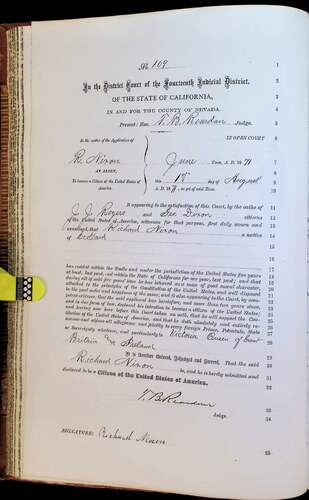 No 109
In the District Court of the Fourteenth Judicial District,
OF THE STATE OF CALIFORNIA,
IN AND FOR THE COUNTY OF NEVADA.
Present: Hon. T. B. Reardan Judge.
In the matter of the Application of
IN OPEN COURT
R. Nixon
June Term, A. D. 1871
AN ALIEN,
To become a Citizen of the United States of America.
this 1st day of August
A. D. 187 , as yet of said Term.
It appearing to the satisfaction of this Court, by the oaths of
J. J. Rogers and Geo. Dixon citizens
of the United States of America, witnesses for that purpose, first duly sworn and
examined, that Richard Nixon a native
of
has resided within the limits and under the jurisdiction of the United States five years
at least, last past, and within the State of California for one year, last past; and that
during all of said five years' time he has behaved as a man of good moral character,
attached to the principles of the Constitution of the United States, and well disposed
to the good order and happiness of the same; and it also appearing to the Court, by com-
petent evidence, that the said applicant has heretofore, and more than two years since,
and in due form of law, declared his intention to become a citizen of the United States;
and having now here before this Court taken an oath, that he will support the Con-
stitution of the United States of America, and that he doth absolutely and entirely re-
nounce and abjure all allegiance and fidelity to every foreign Prince, Potentate, State
or Sovereignty whatever, and particularly to Victoria Queen of Great
Britain and Ireland
It is therefore Ordered, Adjudged and Decreed, That the said
Richard Nixon be, and he is hereby admitted and
declared to be a Citizen of the United States of America.
T. B. Reardan
Judge.
SIGNATURE: Richard Nixon